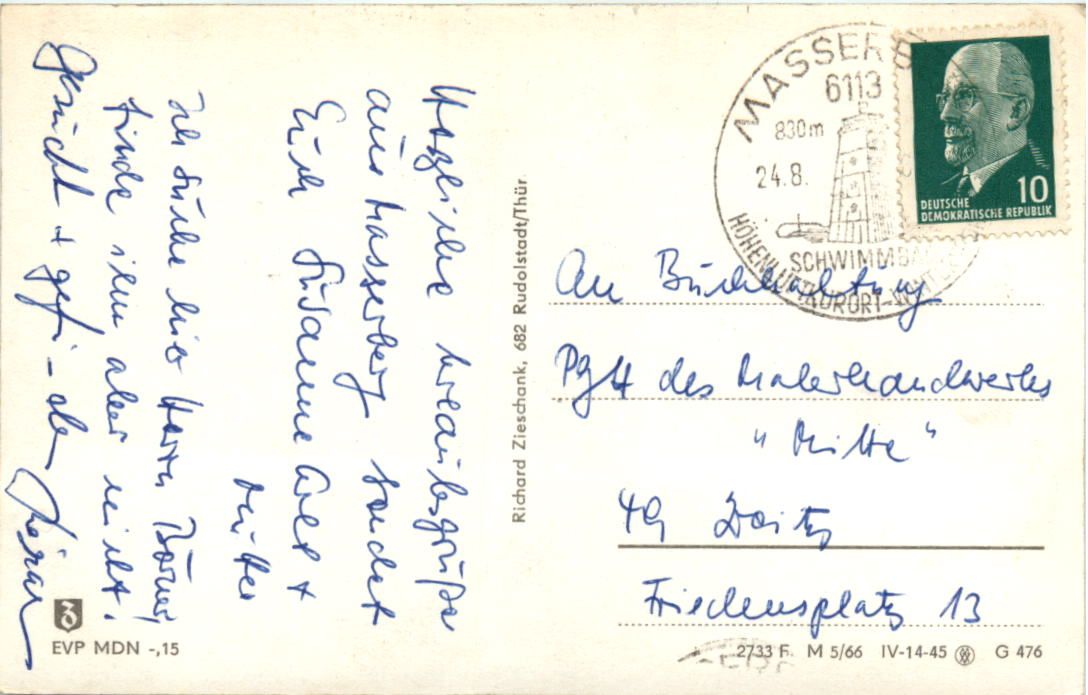 Herzliche Urlaubsgrüße
aus Masserberg sendet
Euch Susanne Arlt +
Mutter
Ich suche hier Herrn Börner,
finde ihn aber nicht!
Gesucht + gefu-den
EVP MDN -,15
Richard Zieschank, 682 Rudolstadt/Thür.
MASSERB
6113
830m
24.8.
SCHWIMMBA
HÖHENLUFTKURORT-WINT
DEUTSCHE
DEMOKRATISCHE REPUBLIK
10
An Buchhaltung
PGH des Malerhandwerks
"Mitte"
49 Zeitz
Friedensplatz 13
2733 F. M 5/66 IV-14-45 G 476